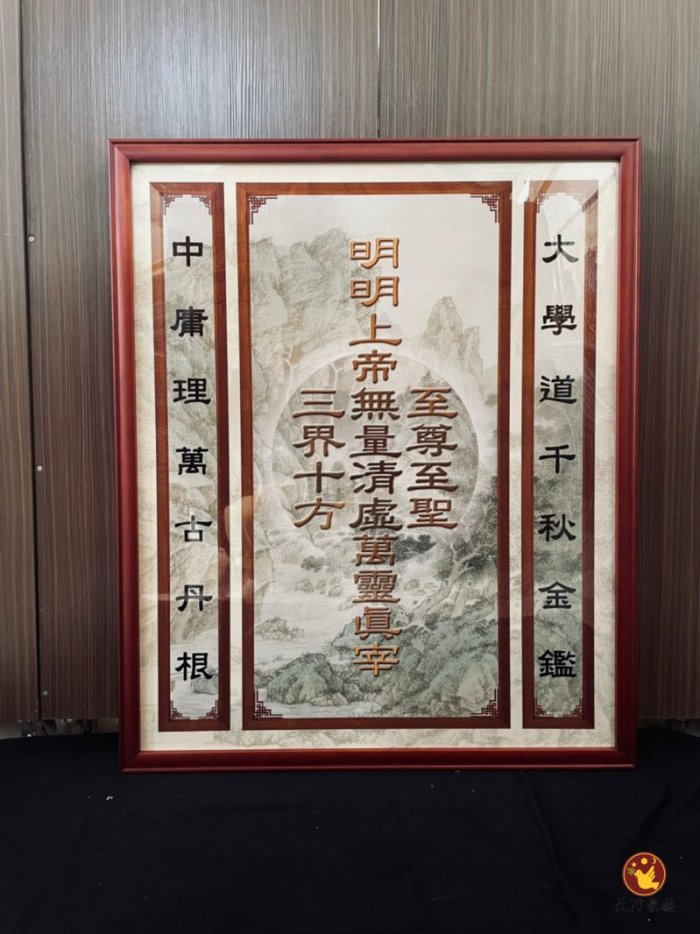 大學道千秋金鑑
至尊至聖
明明上帝無量清虛萬靈真宰
三界十方
中庸理萬古丹根